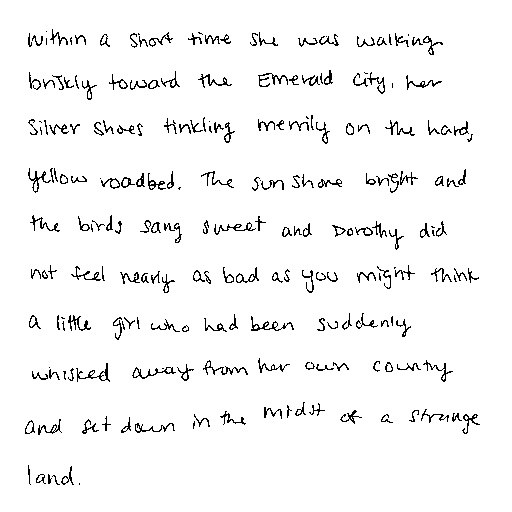 Within a short time she was walking
briskly toward the Emerald City, her
Silver Shoes tinkling merrily on the hard,
yellow roadbed. The sun shone bright and
the birds sang sweet and Dorothy did
not feel nearly as bad as you might think
a little girl who had been suddenly
whisked away from her own country
and set down in the midst of a strange
land.